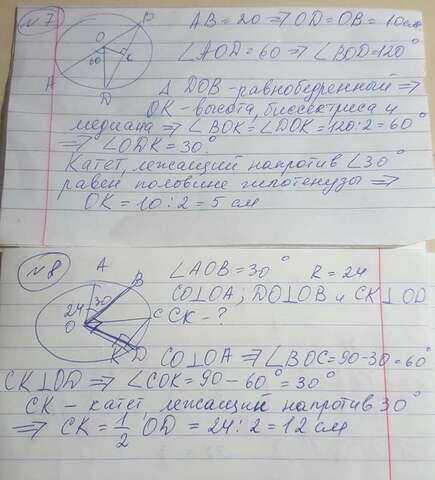 №7
B
O
60
K
A
D
AB = 20 ⇒ OD = OB = 10 см
∠AOD = 60 ⇒ ∠BOD = 120°
Δ DOB - равнобедренный ⇒
OK - высота, биссектриса и
медиана ⇒ ∠BOK = ∠DOK = 120:2 = 60°
⇒ ∠ODK = 30°
Катет, лежащий напротив ∠30°
равен половине гипотенузы ⇒
OK = 10 : 2 = 5 см
№8
A
B
24
30
O
C
K
D
∠AOB = 30° R = 24
CO⊥OA; DO⊥OB и CK⊥OD
CK - ?
CO⊥OA ⇒ ∠BOC = 90-30 = 60°
CK⊥OD ⇒ ∠COK = 90 - 60° = 30°
CK - катет, лежащий напротив 30°
⇒ CK = 1/2 OD = 24 : 2 = 12 см